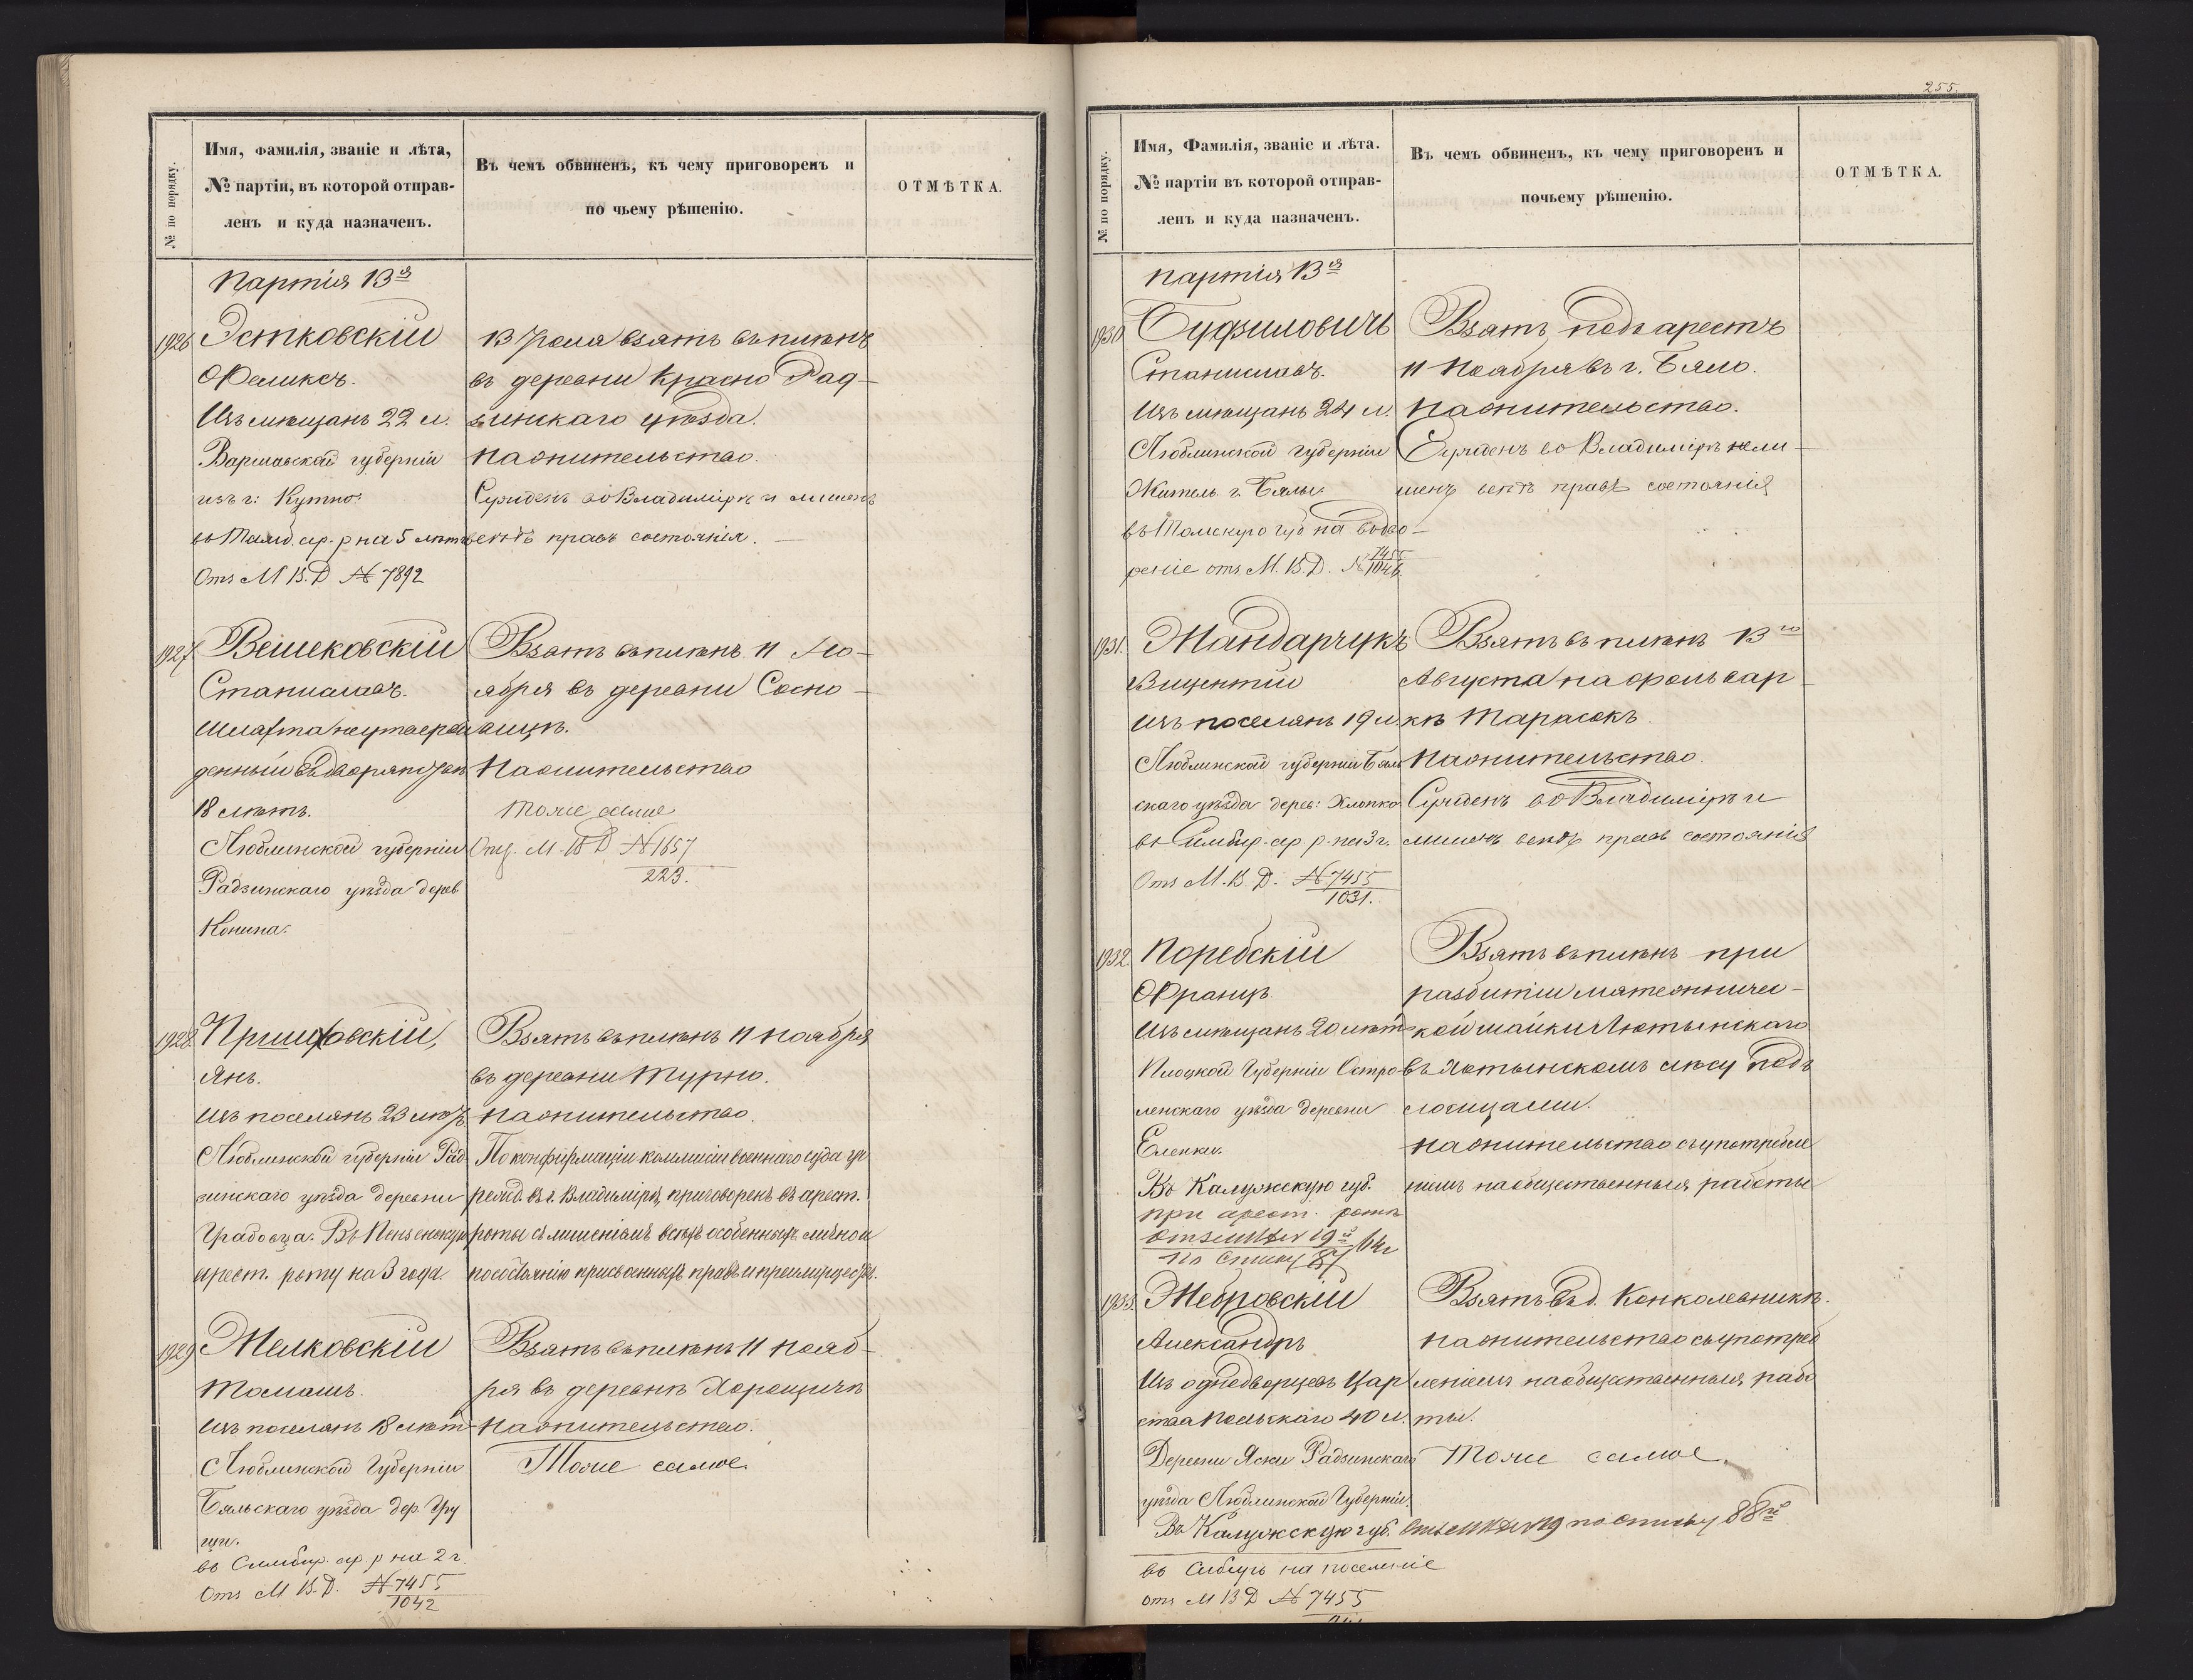 № по порядку.
Имя, Фамилія, званіе и лѣта,
№ партіи, въ которой отправ-
ленъ и куда назначенъ.
Въ чемъ обвиненъ, къ чему приговоренъ и
по чьему рѣшенію.
ОТМѢТКА.
Партія 13я
1926
Эстковскій
Феликсъ.
Изъ мѣщанъ 22 л.
Варшавской губерніи
изъ г: Кутно.
на 5 лѣтъ
Отъ М. В. Д № 7892
взятъ въ плѣнъ
въ деревни Красно Рад-
зинскаго уѣзда.
Наочительство.
Сужденъ во Владимірѣ и лишенъ
всѣхъ правъ состоянія.
1927
Вешековскій
Станиславъ.
Шляхта неутверж
денный въ дворянствѣ
18 лѣтъ.
Люблинской губерніи
Радзинскаго уѣзда дерев
Конина.
Взятъ въ плѣнъ 11 Но-
ября въ деревни Сосно-
вицѣ.
Наочительство
Тоже самое
М. В Д № 1657
223.
1928
Янъ.
Изъ поселянъ 23 лѣтъ
Люблинской губерніи Рад
зинскаго уѣзда деревни
Въ Пензенскую
арест. роту на 3 года.
Взятъ въ плѣнъ 11 ноября
въ деревни Турно.
Наочительство.
По конфирмаціи коммисіи военнаго суда уч
режд. въ г. Владимірѣ, приговоренъ въ арест.
роты съ лишеніемъ всѣхъ особенныхъ лично и
по состоянію присвоенныхъ правъ и преимуществъ.
1929
Желковскій
Томашъ.
Изъ поселянъ 18 лѣтъ
Люблинской Губерніи
Бяльскаго уѣзда дер. Гру
щи.
въ Симбир. ар. р на 2 г.
Отъ М В. Д. № 7455
1042
Взятъ въ плѣнъ 11 нояб-
ря въ деревнѣ Хорощичѣ
Наочительство.
Тоже самое.
255.
№ по порядку.
Имя, Фамилія, званіе и лѣта.
№ партіи въ которой отправ-
ленъ и куда назначенъ.
Въ чемъ обвиненъ, къ чему приговоренъ и
почьему рѣшенію.
ОТМѢТКА.
Партія 13я
1930
Станиславъ.
Изъ мѣщанъ 24 л.
Люблинской губерніи
Житель г. Бялы.
въ Томскую губ на водво-
реніе отъ М. В. Д. № 7455
1046.
Взятъ подъ арестъ
11 Ноября въ г. Бяло.
Наочительство.
Сужденъ во Владимірѣ и ли-
шенъ всѣхъ правъ состоянія
1931.
Мандарчукъ
Вицентій
Изъ поселянъ 19 л.
Люблинской губерніи Бял
скаго уѣзда дерев: Хлопко
въ Симбир. ар р. на 3 г.
Отъ М. В. Д. № 7455
1031.
Взятъ въ плѣнъ 13го
Августа на фольвар-
кѣ Тарасокъ.
Наочительство.
Сужденъ во Владимірѣ и
лишенъ всѣхъ правъ состоянія
1932.
Поребскій
Францъ.
Изъ мѣщанъ 20 лѣтъ
Плоцкой Губерніи Остро-
ленскаго уѣзда деревни
Еленки.
Въ Калужскую губ.
при арест. ротѣ
Взятъ въ плѣнъ при
разбитіи мятежничес-
кой шайки Лютынскаго
лѣсу подъ
Слосицами.
Наочительство съ употребле
ніемъ на общественныя работы
1933.
Жебровскій
Александръ
Изъ однодворцевъ Цар
ства Польскаго 40 л.
Деревни Яски Радзинскаго
уѣзда Люблинской Губерніи.
Въ Калужскую губ. по списку 88
въ Сибирь на поселеніе
отъ М В Д № 7455
Взятъ въ д. Конколевникѣ.
Наочительство съ употреб
леніемъ на общественныя рабо
ты.
Тоже самое.